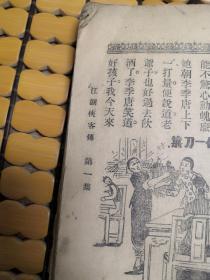 能不驚心動魄
饒朝李季唐上下
一打量便說道老
爺子也好過去伙
酒了李季唐笑道
好孩子我今天來
江湖俠客傳　第一集
一刀